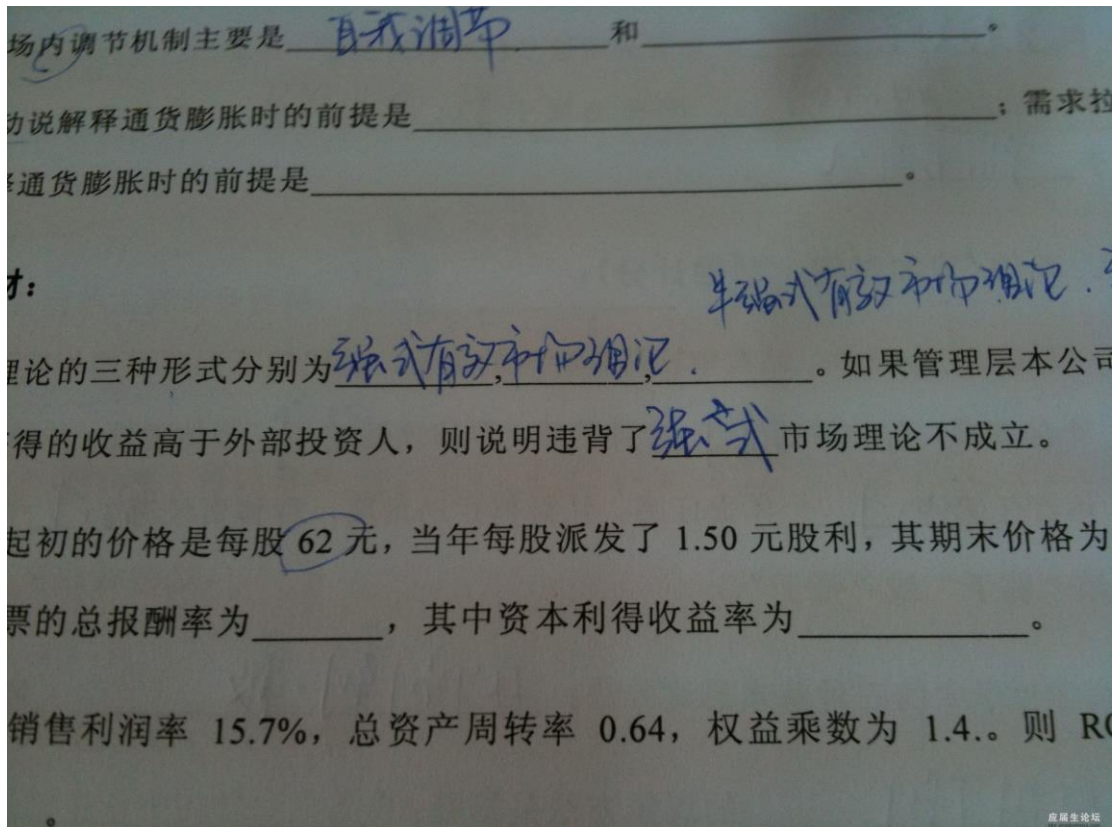 场内调节机制主要是 自我调节 和 。
动说解释通货膨胀时的前提是 ；需求拉
通货膨胀时的前提是 。
半强式有效市场理论.
理论的三种形式分别为强式有效市场理论, . 。如果管理层本公司
得的收益高于外部投资人，则说明违背了强式市场理论不成立。
起初的价格是每股 62 元，当年每股派发了 1.50 元股利，其期末价格为
票的总报酬率为 ，其中资本利得收益率为 。
销售利润率 15.7%，总资产周转率 0.64，权益乘数为 1.4.。则 RO
。
应届生论坛